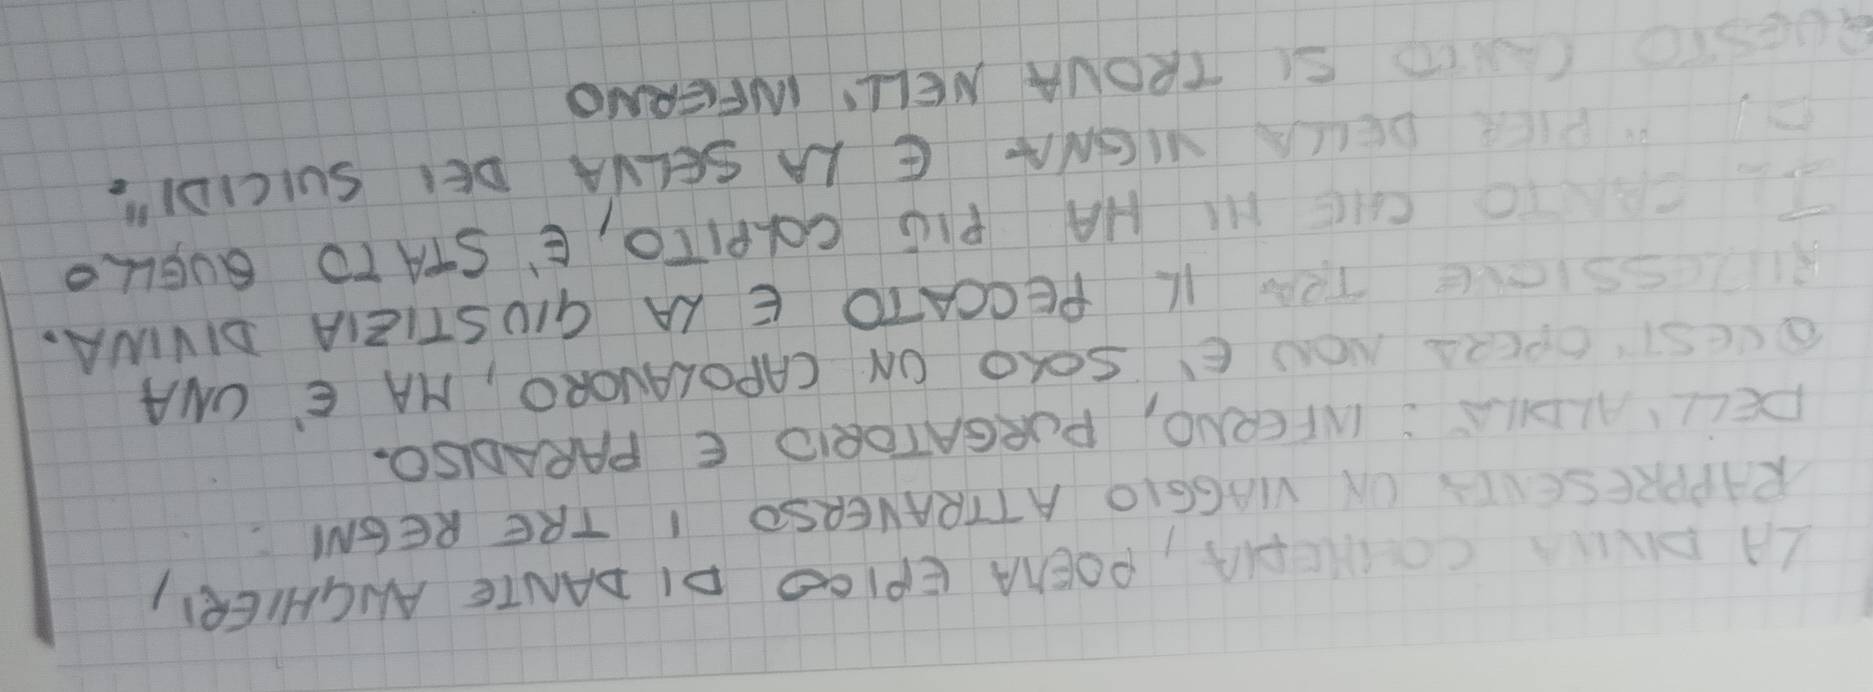 LA DIVINA COMMEDIA, POEMA EPICO DI DANTE ANGHIERI,
RAPPRESENTA UN VIAGGIO ATTRAVERSO I TRE REGNI
DELL'ALDILÀ: INFERNO, PURGATORIO E PARADISO.
QUEST'OPERA NON È SOLO UN CAPOLAVORO, MA È UNA
RIFLESSIONE TRA IL PECCATO E LA GIUSTIZIA DIVINA.
IL CANTO CHE MI HA PIÙ COLPITO, È STATO QUELLO
DI "PIER DELLA VIGNA E LA SELVA DEI SUICIDI".
QUESTO CANTO SI TROVA NELL'INFERNO